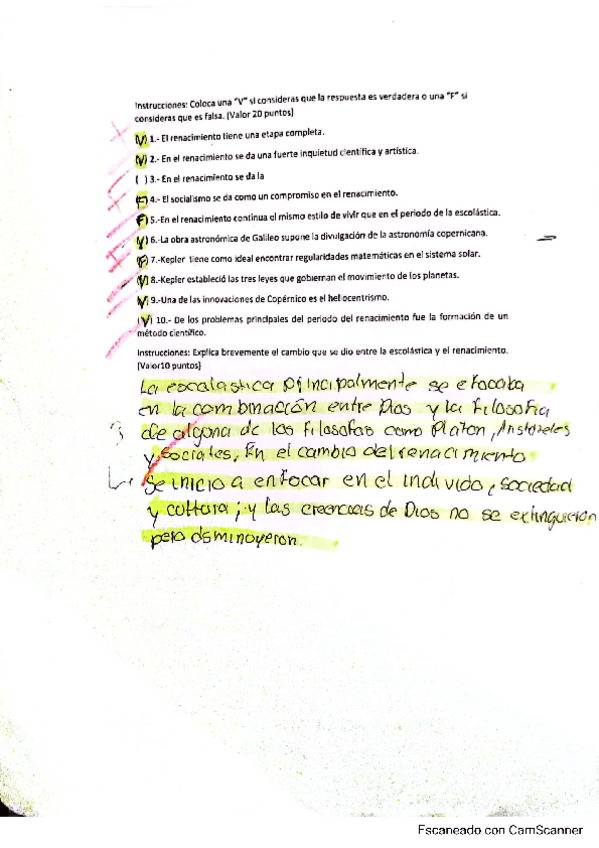 Instrucciones: Coloca una "V" si consideras que la respuesta es verdadera o una "F" si
consideras que es falsa. (Valor 20 puntos)
(V) 1.- El renacimiento tiene una etapa completa.
(V) 2.- En el renacimiento se da una fuerte inquietud científica y artística.
( ) 3.- En el renacimiento se da la
(F) 4.- El socialismo se da como un compromiso en el renacimiento.
(F) 5.-En el renacimiento continua el mismo estilo de vivir que en el periodo de la escolástica.
(V) 6.-La obra astronómica de Galileo supone la divulgación de la astronomía copernicana.
(F) 7.-Kepler tiene como ideal encontrar regularidades matemáticas en el sistema solar.
(V) 8.-Kepler estableció las tres leyes que gobiernan el movimiento de los planetas.
(V) 9.-Una de las innovaciones de Copérnico es el heliocentrismo.
(V) 10.- De los problemas principales del periodo del renacimiento fue la formación de un
método científico.
Instrucciones: Explica brevemente el cambio que se dio entre la escolástica y el renacimiento.
(Valor10 puntos)
La escalastica principalmente se efocaba
en la combinación entre Dios y la filosofia
de alguna de los filosofos como Platon, Aristoteles
y Socrates. En el cambio del renacimiento
se inicio a enfocar en el individo, sociedad
y cultura; y las creencias de Dios no se extinguieron
pero disminuyeron.
Escaneado con CamScanner